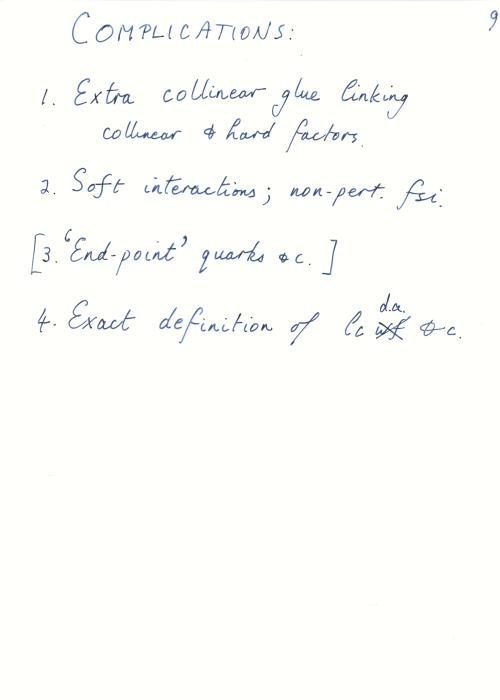 9
COMPLICATIONS:
1. Extra collinear glue linking
collinear & hard factors.
2. Soft interactions; non-pert. fsi.
[3. 'End-point' quarks &c.]
d.a.
4. Exact definition of lc wf &c.